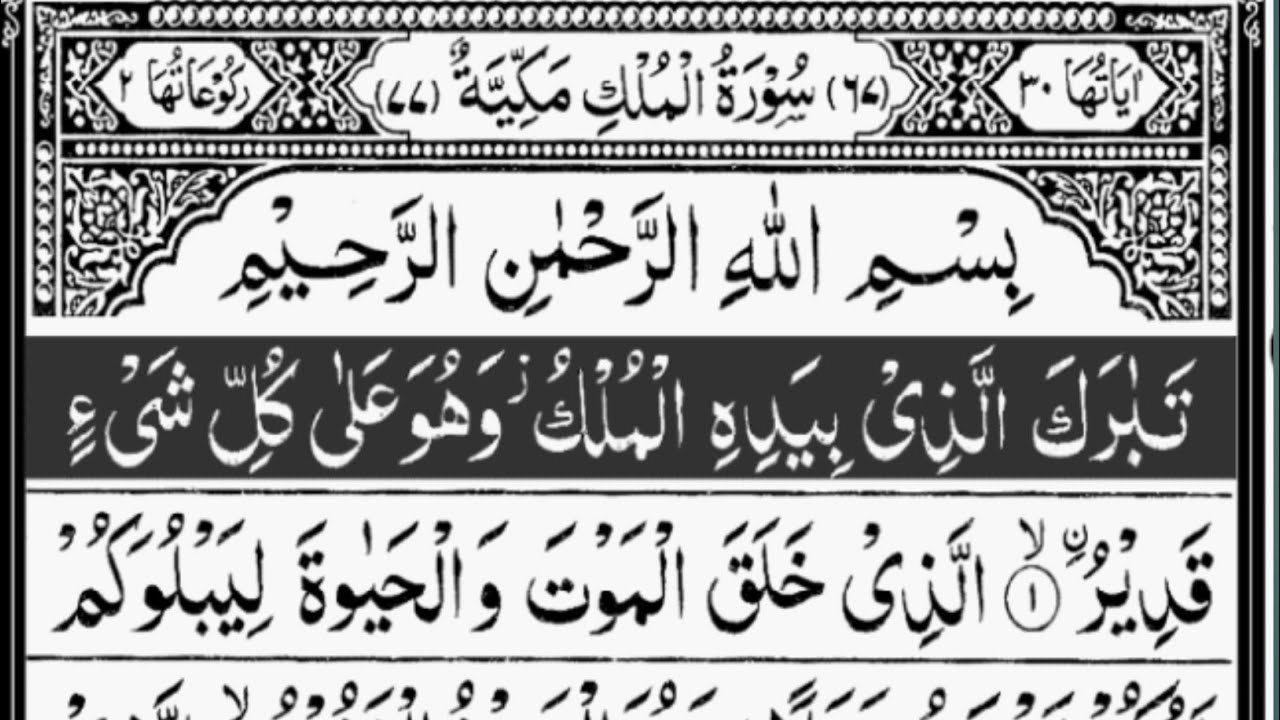 اٰيَاتُهَا ٣٠ (٦٧) سُوْرَةُ الْمُلْكِ مَكِّيَّةٌ (٧٧) رَكُوْعَاتُهَا ٢
بِسْمِ اللّٰهِ الرَّحْمٰنِ الرَّحِيْمِ
تَبٰرَكَ الَّذِىْ بِيَدِهِ الْمُلْكُ ز وَهُوَ عَلٰى كُلِّ شَىْءٍ
قَدِيْرُ نِ ۙ ١ الَّذِىْ خَلَقَ الْمَوْتَ وَالْحَيٰوةَ لِيَبْلُوَكُمْ